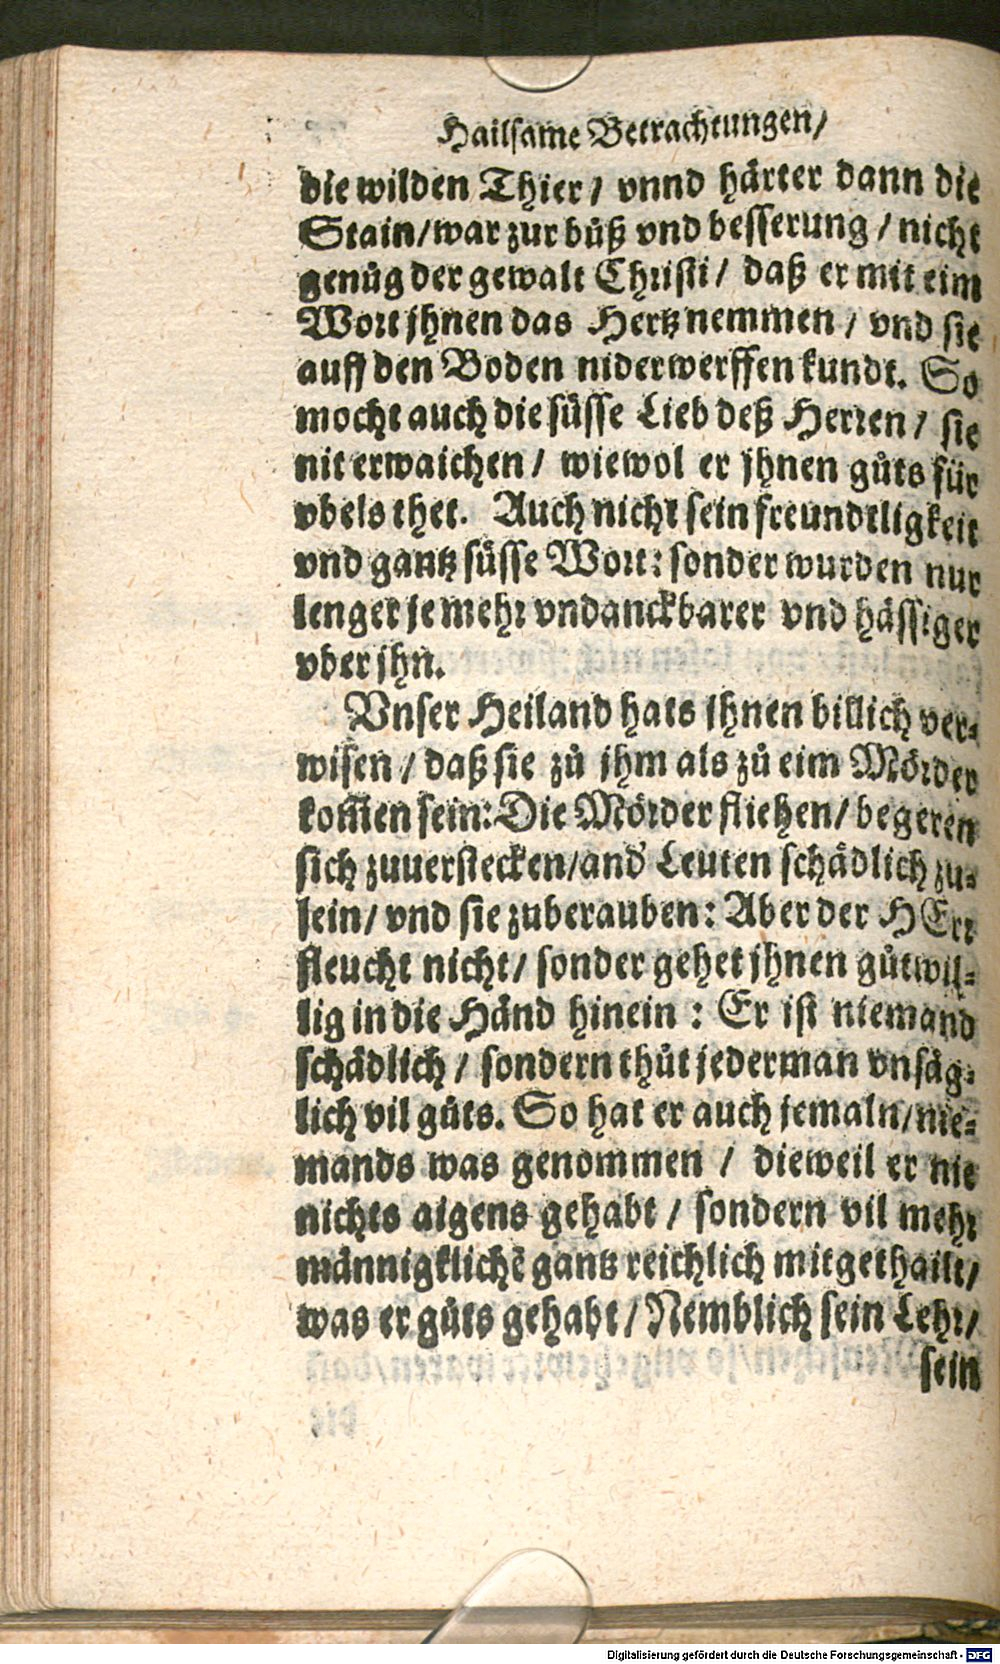 Hailsame Betrachtungen/
die wilden Thier/ vnnd härter dann die
Stain/war zur bůß vnd besserung/ nicht
genůg der gewalt Christi/ daß er mit eim
Wort jhnen das Hertz nemmen/ vnd sie
auff den Boden niderwerffen kundt. So
mocht auch die süsse Lieb deß Herren/ sie
nit erwaichen/ wiewol er jhnen gůts für
vbels thet. Auch nicht sein freundtligkeit
vnd gantz süsse Wort: sonder wurden nur
lenger je mehr vndanckbarer vnd hässiger
vber jhn.
Vnser Heiland hats jhnen billich ver-
wisen/ daß sie zů jhm als zů eim Mörder
kom̃en sein: Die Mörder fliehen/ begeren
sich zuuerstecken/and' Leuten schädlich zu-
sein/ vnd sie zuberauben: Aber der HErr
fleucht nicht/ sonder gehet jhnen gůtwil-
lig in die Händ hinein: Er ist niemand
schädlich/ sondern thůt jederman vnsäg-
lich vil gůts. So hat er auch jemaln/nie-
mands was genommen/ dieweil er nie
nichts aigens gehabt/ sondern vil mehr
männigklichē gantz reichlich mitgethailt/
was er gůts gehabt/ Nemblich sein Lehr/
sein
Digitalisierung gefördert durch die Deutsche Forschungsgemeinschaft - DFG